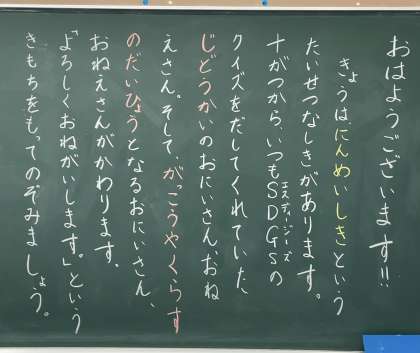 おはようございます!!
きょうは、にんめいしきという
たいせつなしきがあります。
十がつから、いつもSDGSの
エスディージーズ
クイズをだしてくれていた、
じどうかいのおにいさん、おね
えさん。そして、がっこうやくらす
のだいひょうとなるおにいさん、
おねえさんがかわります。
「よろしくおねがいします。」という
きもちをもってのぞみましょう。